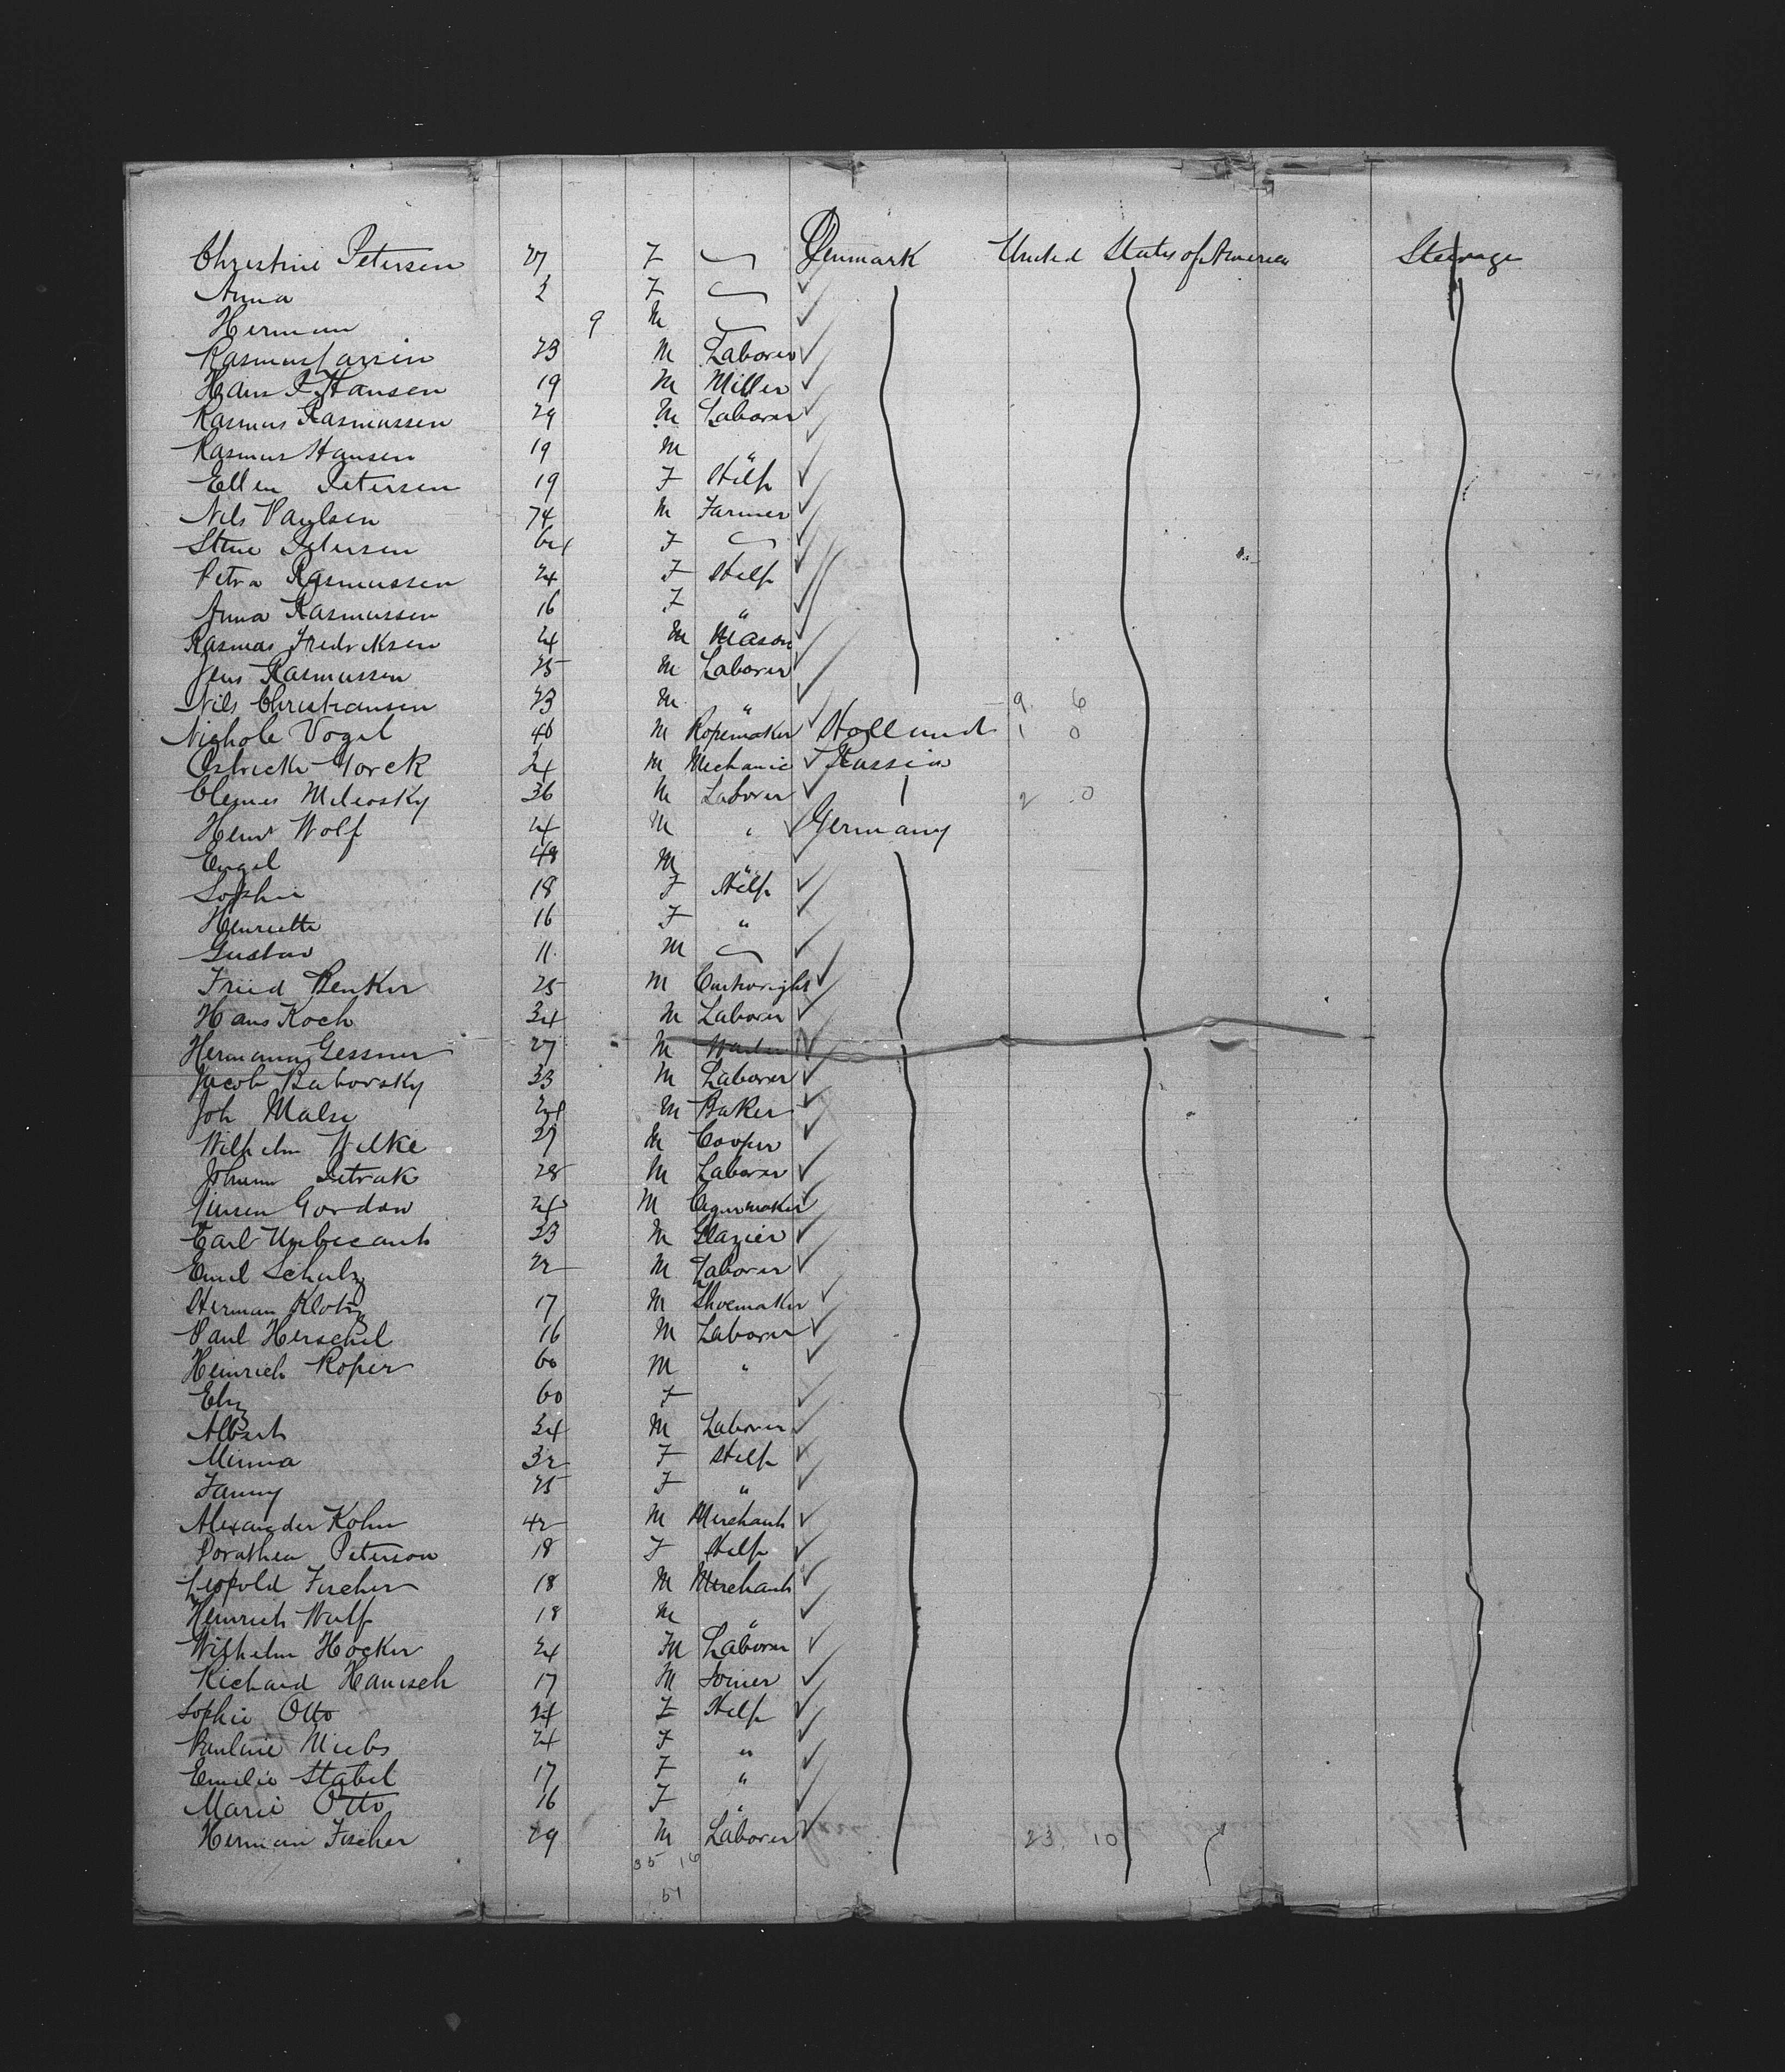 Christine Petersen 27 F Denmark United States of America Steerage
Anna 2 F
Herman 9 M
Rasmus Larsen 23 M Laborer
Hans P. Hansen 19 M Miller
Rasmus Rasmussen 29 M Laborer
Rasmus Hansen 19 M "
Ellen Petersen 19 F Help
Nils Paulsen 74 M Farmer
Stine Petersen 64 F
Petra Rasmussen 24 F Help
Anna Rasmussen 16 F "
Rasmus Fredriksen 24 M Mason
Jens Rasmussen 25 M Laborer
Nils Christiansen 23 M " 9 6
Vogel 46 M Ropemaker Holland 1 0
Yorck 24 M Mechanic Russia
Clemes 36 M Laborer 2 0
Henr Wolf 24 M " Germany
Engel 48 M "
Sophie 18 F Help
Henriette 16 F "
Gustav 11 M
Fried Benker 25 M
Hans Koch 34 M Laborer
Hermann Gessner 27 M
Jacob Baborsky 33 M Laborer
Joh 24 M Baker
Wilhelm Wilke 27 M Cooper
Johann Petrak 28 M Laborer
Gordon 24 M Cigarmaker
Carl 33 M Glazier
Emil Schulz 22 M Laborer
Herman Klotz 17 M Shoemaker
Paul Herschel 16 M Laborer
Heinrich Roper 60 M "
Elis 60 F
Albert 34 M Laborer
Minna 32 F Help
Fanny 25 F "
Alexander Kohn 42 M Merchant
Dorathea Peterson 18 F Help
Leopold Fischer 18 M Merchant
Heinrich Wulf 18 M "
Wilhelm Hocker 24 M Laborer
Richard Hanisch 17 M Joiner
Sophie Otto 24 F Help
Pauline Miebs 24 F "
Emilie Stabel 17 F "
Marie Otto 16 F "
Herman Fischer 29 M Laborer 23 10
35 16
51